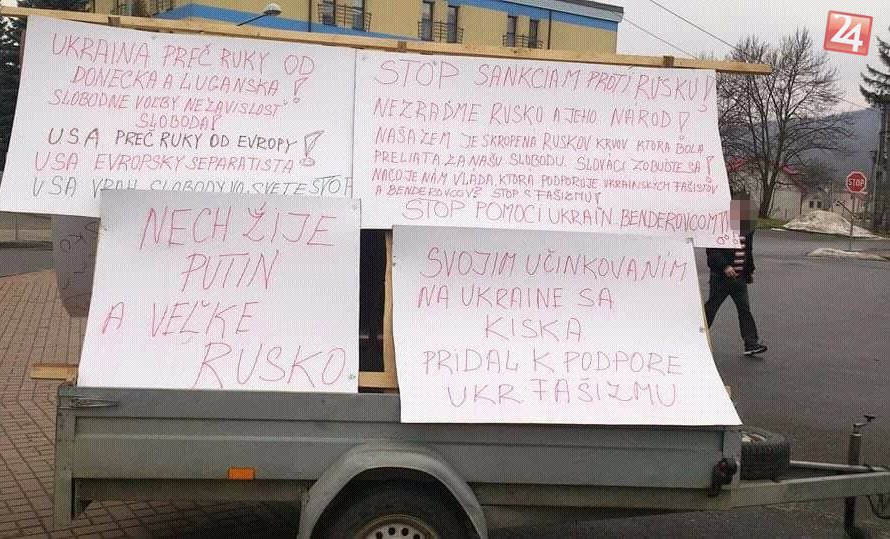 24
UKRAINA PREČ RUKY OD
DONECKA A LUGANSKA!
SLOBODNE VOĽBY NEZAVISLOSŤ
SLOBODA!
USA PREČ RUKY OD EVROPY!
USA EVROPSKY SEPARATISTA!
USA VRAH SLOBODY VO SVETE STOP
STOP SANKCIAM PROTI RUSKU!
NEZRAĎME RUSKO A JEHO NÁROD!
NAŠA ZEM JE SKROPENA RUSKOV KRVOV KTORA BOLA
PRELIATA ZA NAŠU SLOBODU. SLOVÁCI ZOBUĎTE SA!
NAČO JE NÁM VLADA KTORA PODPORUJE UKRAINSKÝCH FAŠISTOV
A BENDEROVCOV? STOP S FAŠIZMU!
STOP POMOCI UKRAIN BENDEROVCOM!!!
NECH ŽIJE
PUTIN
A VEĽKE
RUSKO
SVOJIM UČINKOVANIM
NA UKRAINE SA
KISKA
PRIDAL K PODPORE
UKR FAŠIZMU
STOP